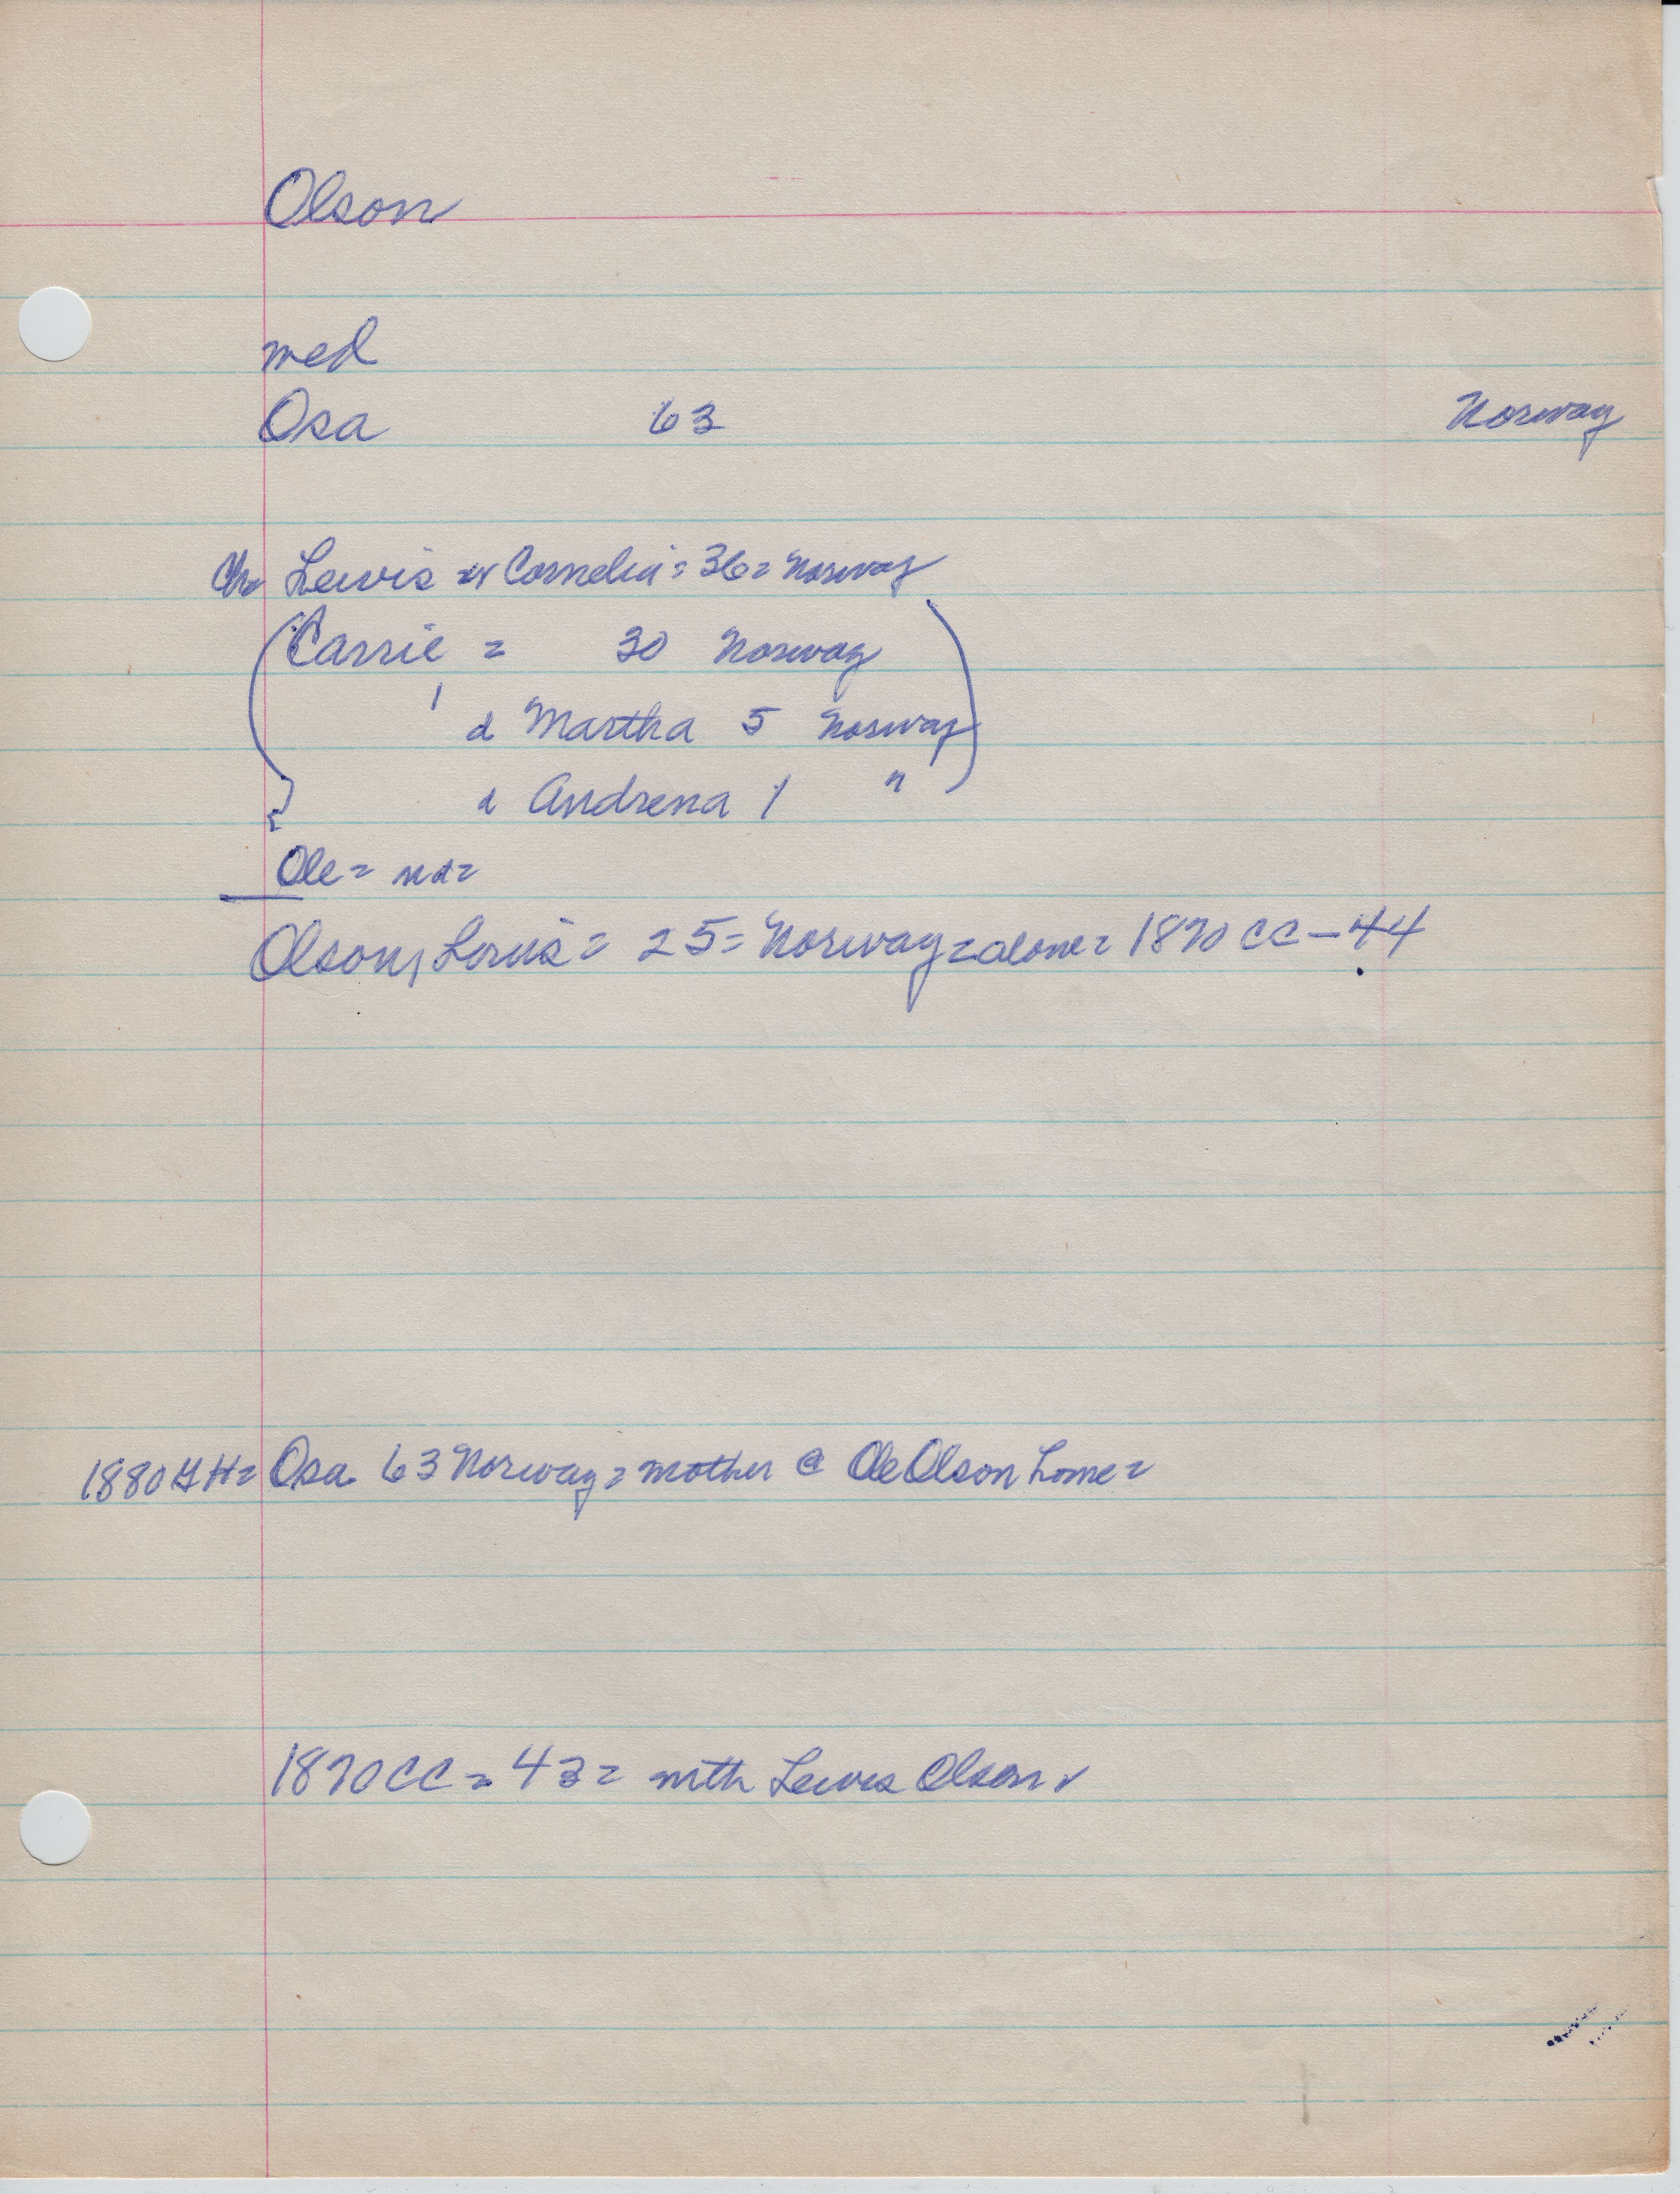 Olson
med
Osa 63 Norway
Ch= Lewis w Cornelia = 36 = Norway
(Carrie = 30 Norway)
d Martha 5 Norway
d Andrena 1 "
Ole = nd=
Olson, Louis = 25 = Norway = alone = 1870 CC - 44
1880 GH= Osa 63 Norway = mother @ Ole Olson home =
1870 CC = 43 = with Lewis Olson